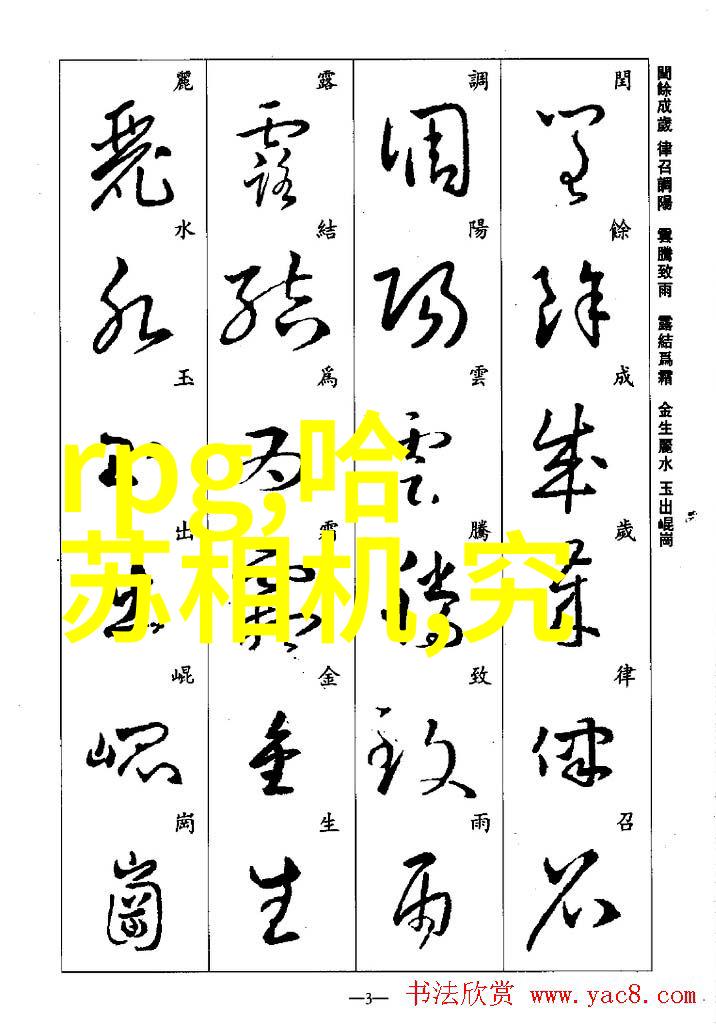 閏餘成歲 律召調陽 雲騰致雨 露結爲霜 金生麗水 玉出崐崗
閏
餘
成
歲
律
召
調
陽
雲
騰
致
雨
露
結
爲
霜
金
生
麗
水
玉
出
崐
崗
rpg,哈
苏相机,究
—3—
书法欣赏 www.yac8.com